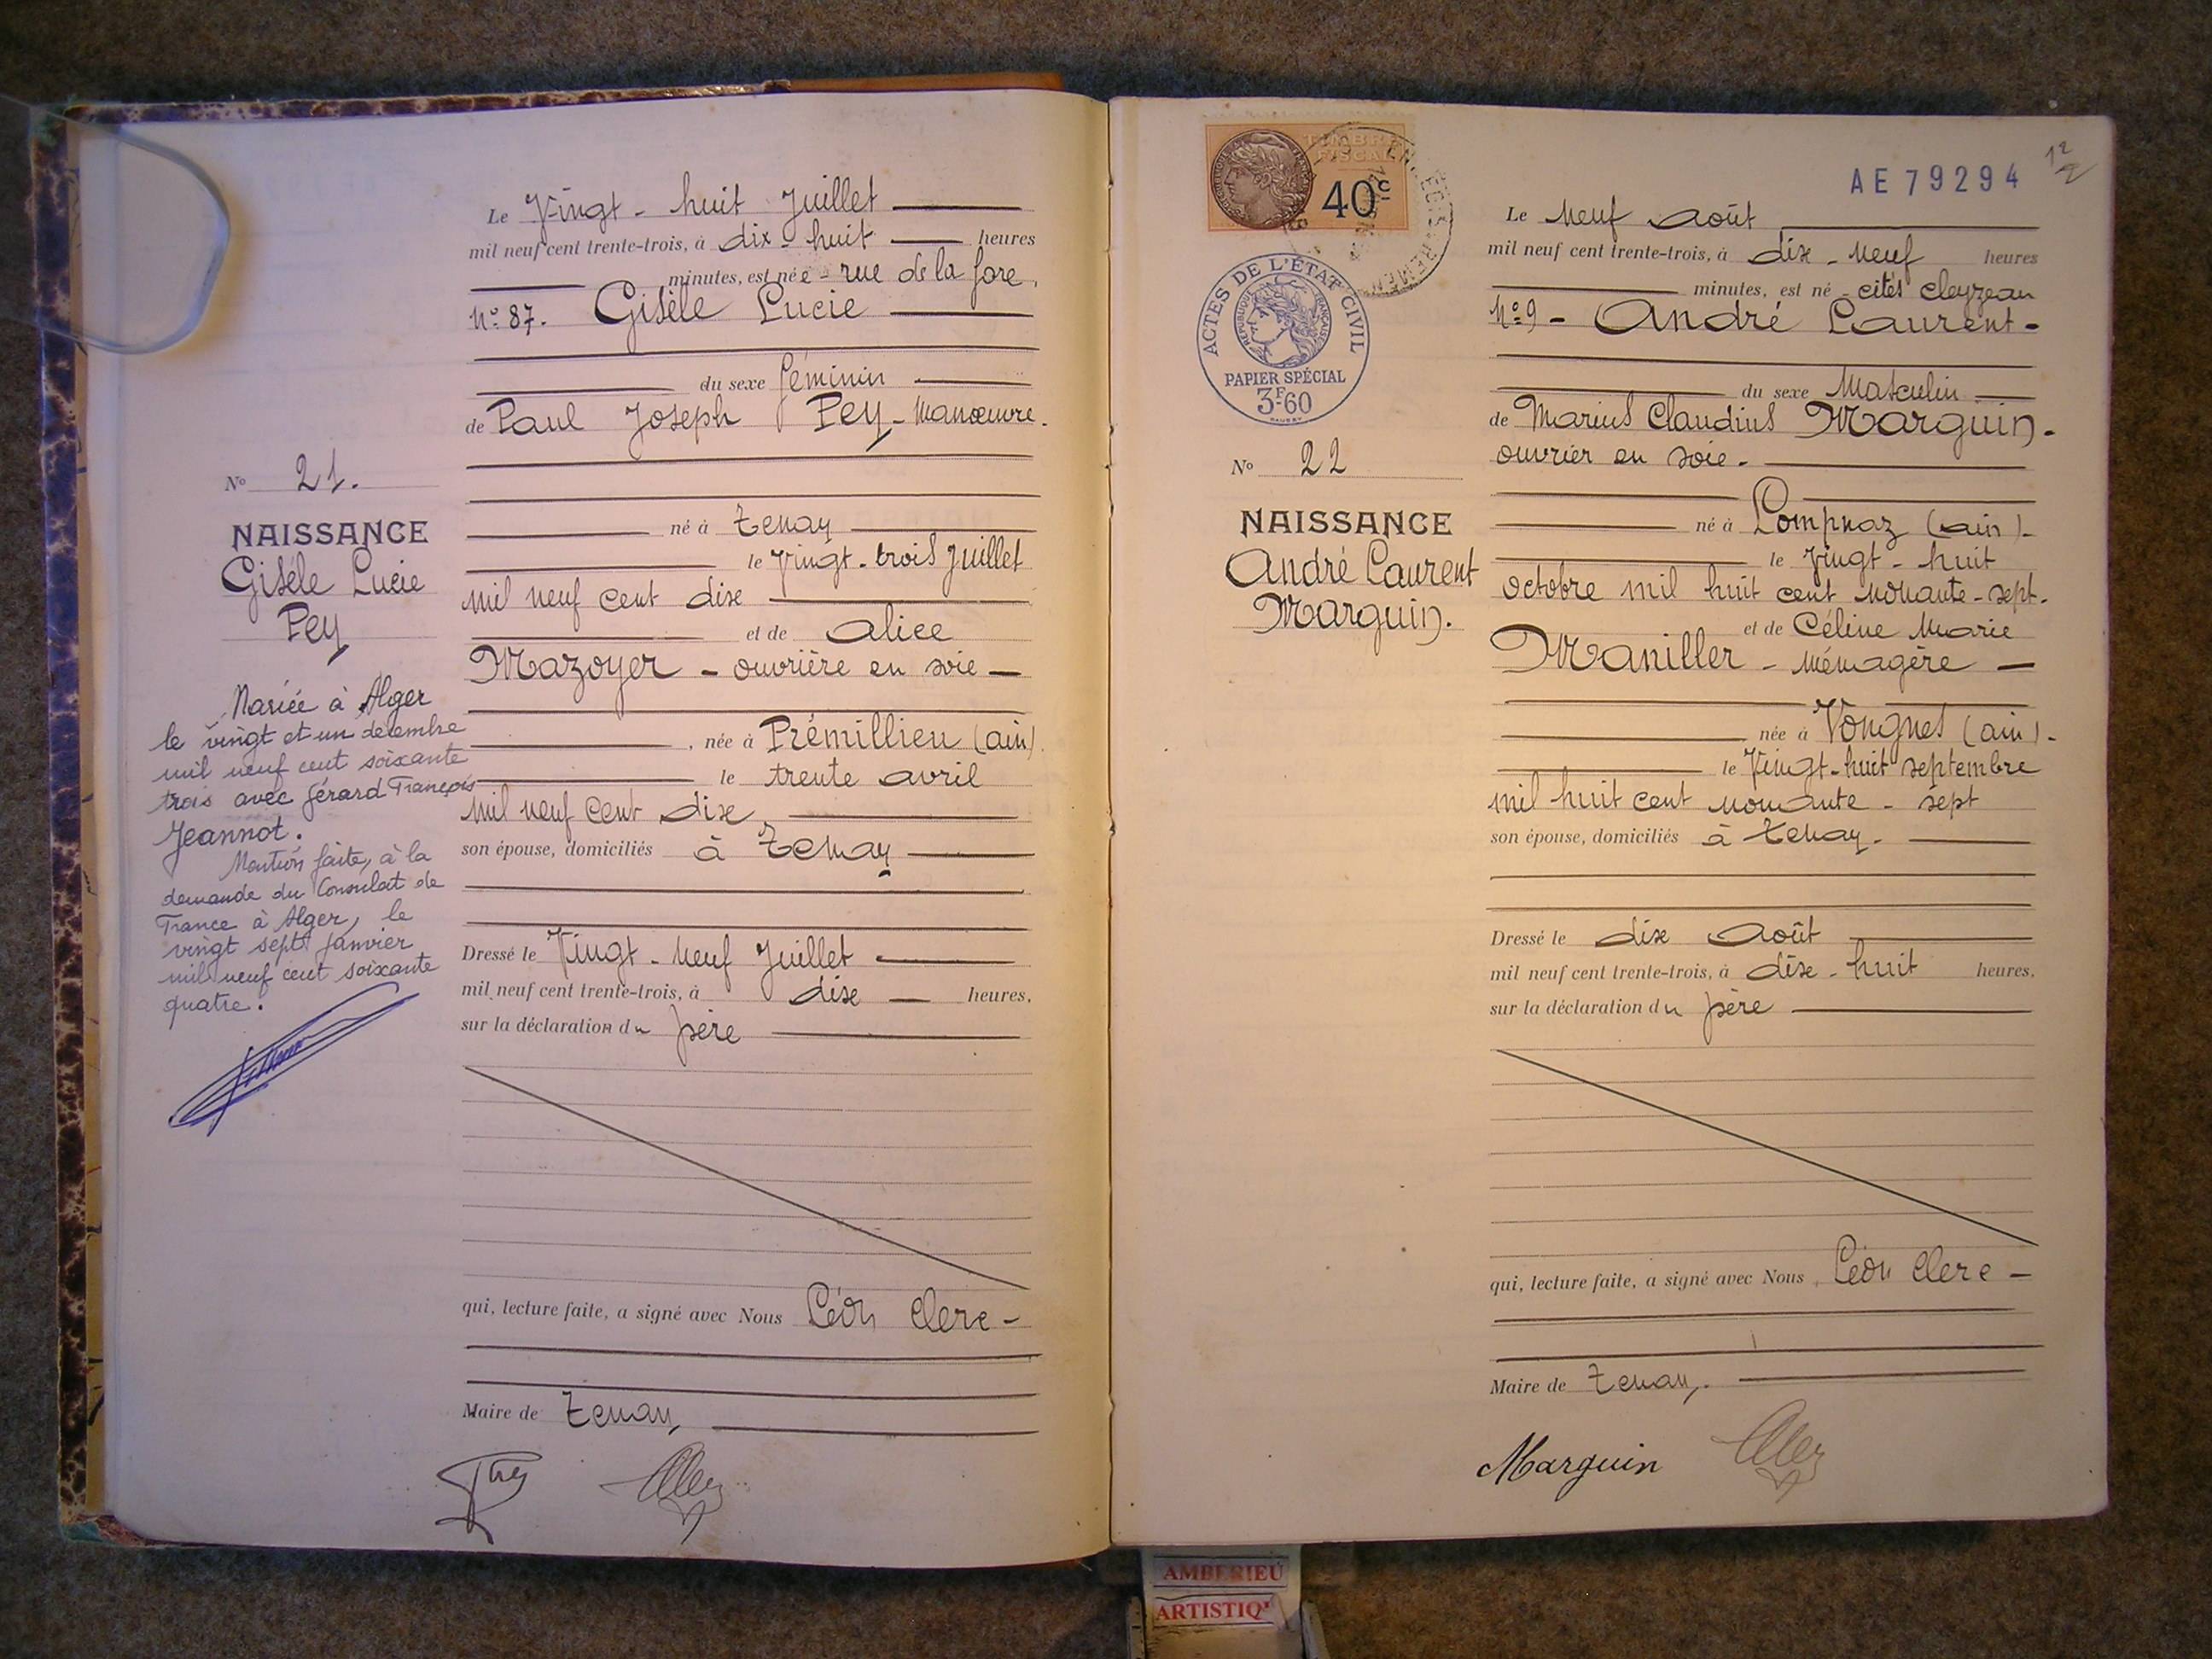 Le Vingt-huit Juillet
mil neuf cent trente-trois, à dix-huit heures
minutes, est née - rue de la
N° 87. Gisèle Lucie
du sexe féminin
de Paul Joseph Pey - Manœuvre.
N° 21.
NAISSANCE
Gisèle Lucie
Pey
né à Tenay
le Vingt-trois Juillet
mil neuf cent dix
et de Alice
Mazoyer - ouvrière en soie -
, née à Prémillieu (Ain).
le trente avril
mil neuf cent dix
son épouse, domiciliés à Tenay
Mariée à Alger
le vingt et un décembre
mil neuf cent soixante
trois avec Gérard François
Jeannot.
Mention faite, à la
demande du Consulat de
France à Alger, le
vingt sept Janvier
mil neuf cent soixante
quatre.
Dressé le Vingt-neuf Juillet
mil neuf cent trente-trois, à dix heures,
sur la déclaration du père
qui, lecture faite, a signé avec Nous Léon Clerc -
Maire de Tenay,
TIMBRE
FISCAL
40c
AE 79294
ACTES DE L'ÉTAT CIVIL
RÉPUBLIQUE FRANÇAISE
PAPIER SPÉCIAL
3F60
Le Neuf Août
mil neuf cent trente-trois, à dix-neuf heures
minutes, est né - cités Cleyzeau
N° 9 - André Laurent -
du sexe Masculin
de Marius Claudius Marguin -
ouvrier en soie -
N° 22
NAISSANCE
André Laurent
Marguin.
né à Lompnaz (Ain) -
le Vingt-huit
octobre mil huit cent nonante-sept.
et de Céline Marie
Maniller - ménagère -
née à Vongnes (Ain) -
le Vingt-huit septembre
mil huit cent nonante-sept
son épouse, domiciliés à Tenay.
Dressé le dix Août
mil neuf cent trente-trois, à dix-huit heures,
sur la déclaration du père
qui, lecture faite, a signé avec Nous Léon Clerc -
Maire de Tenay,
Marguin
AMBERIEU
ARTISTIQ